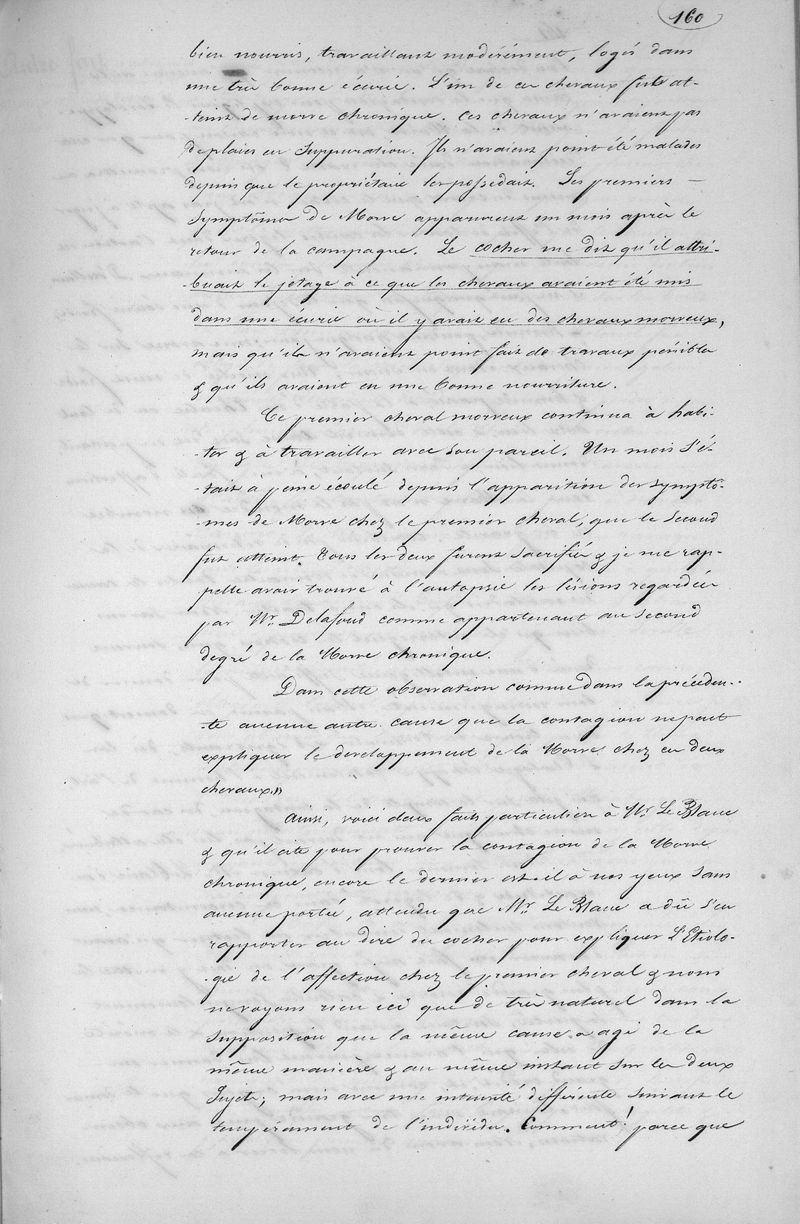 160
bien nourris, travaillant modérément, logés dans
une très bonne écurie. L'un de ces chevaux fut at-
-teint de morve chronique. Ces chevaux n'avaient pas
de plaies en suppuration. Ils n'avaient point été malades
depuis que le propriétaire les possédait. Les premiers
symptômes de Morve apparurent un mois après le
retour de la campagne. Le cocher me dit qu'il attri-
-buait le jetage à ce que les chevaux avaient été mis
dans une écurie où il y avait eu des chevaux morveux,
mais qu'ils n'avaient point fait de travaux pénibles
& qu'ils avaient eu une bonne nourriture.
Ce premier cheval morveux continua à habi-
-ter & à travailler avec son pareil. Un mois s'é-
-tait à peine écoulé depuis l'apparition des symptô-
mes de Morve chez le premier cheval, que le second
fut atteint. Tous les deux furent sacrifiés & je me rap-
pelle avoir trouvé à l'autopsie les lésions regardées
par Mr. Delafond comme appartenant au second
degré de la Morve chronique.
Dans cette observation comme dans la précéden-
-te aucune autre cause que la contagion ne peut
expliquer le developpement de la Morve chez ces deux
chevaux.»
Ainsi, voici deux faits particuliers à Mr. Le Blanc
& qu'il cite pour prouver la contagion de la Morve
chronique, encore le dernier est-il à nos yeux sans
aucune portée, attendu que Mr. Le Blanc a dû s'en
rapporter au dire du cocher pour expliquer l'Etiolo-
-gie de l'affection chez le premier cheval & nous
ne voyons rien ici que de très naturel dans la
supposition que la même cause a agi de la
même manière & au même instant sur les deux
sujets; mais avec une intensité différente suivant le
tempérament de l'individu. Comment! parce que